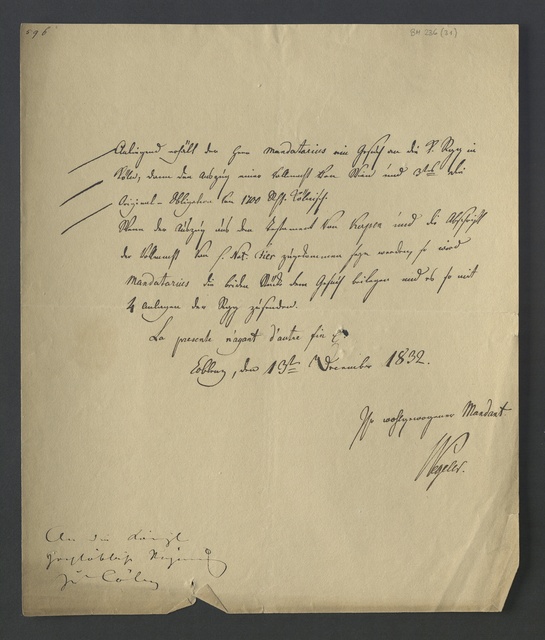 596
BH 236 (21)
Anliegend erhält der Herr Mandatarius ein Gesuch an die K. Regg in
Cölln, dann den Auszug einer Vollmacht von Wien und 3tens die
Original-Obligation von 1200 Rth. Cölnisch.
Wenn der Auszug aus dem Testament von und die Abschrift
der Vollmacht von H. Not. zugekommen seyn werden, so wird
Mandatarius die beiden Stücke dem Gesuch beilegen und es so mit
4 Anlagen der Regg zusenden.
La presente n'ayant d'autre fin
Coblenz, den 13ten December 1832.
Ihr wohlgewogener Mandant
Wegeler.
An die Königl
Regierung
zu Cöln